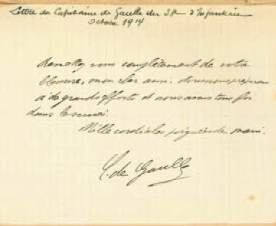 Lettre du Capitaine de Gaulle du 33e d'Infanterie
Octobre 1914
Remettez vous complètement de votre
blessure, mon cher ami.
à de grands efforts et nous avons tous foi
dans
Mille cordiales poignées de main.
C. de Gaulle